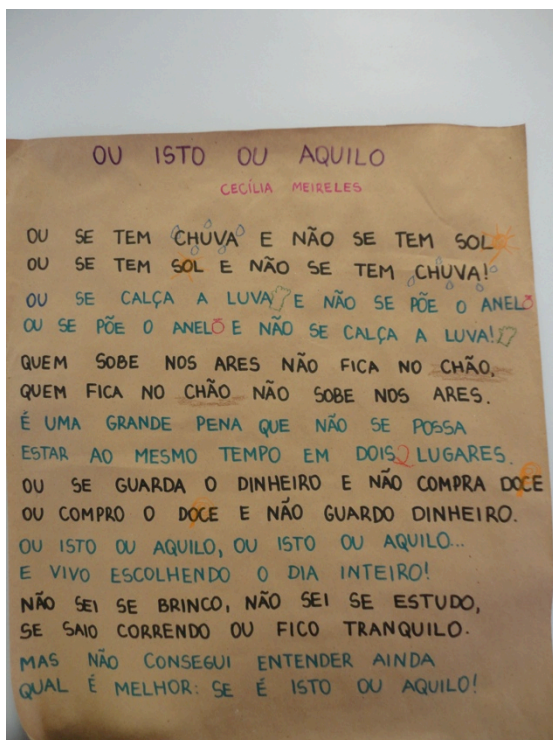 OU ISTO OU AQUILO
CECÍLIA MEIRELES
OU SE TEM CHUVA E NÃO SE TEM SOL
OU SE TEM SOL E NÃO SE TEM CHUVA!
OU SE CALÇA A LUVA E NÃO SE PÕE O ANEL
OU SE PÕE O ANEL E NÃO SE CALÇA A LUVA!
QUEM SOBE NOS ARES NÃO FICA NO CHÃO,
QUEM FICA NO CHÃO NÃO SOBE NOS ARES.
É UMA GRANDE PENA QUE NÃO SE POSSA
ESTAR AO MESMO TEMPO EM DOIS 2 LUGARES.
OU SE GUARDA O DINHEIRO E NÃO COMPRA DOCE
OU COMPRO O DOCE E NÃO GUARDO DINHEIRO.
OU ISTO OU AQUILO, OU ISTO OU AQUILO...
E VIVO ESCOLHENDO O DIA INTEIRO!
NÃO SEI SE BRINCO, NÃO SEI SE ESTUDO,
SE SAIO CORRENDO OU FICO TRANQUILO.
MAS NÃO CONSEGUI ENTENDER AINDA
QUAL É MELHOR: SE É ISTO OU AQUILO!